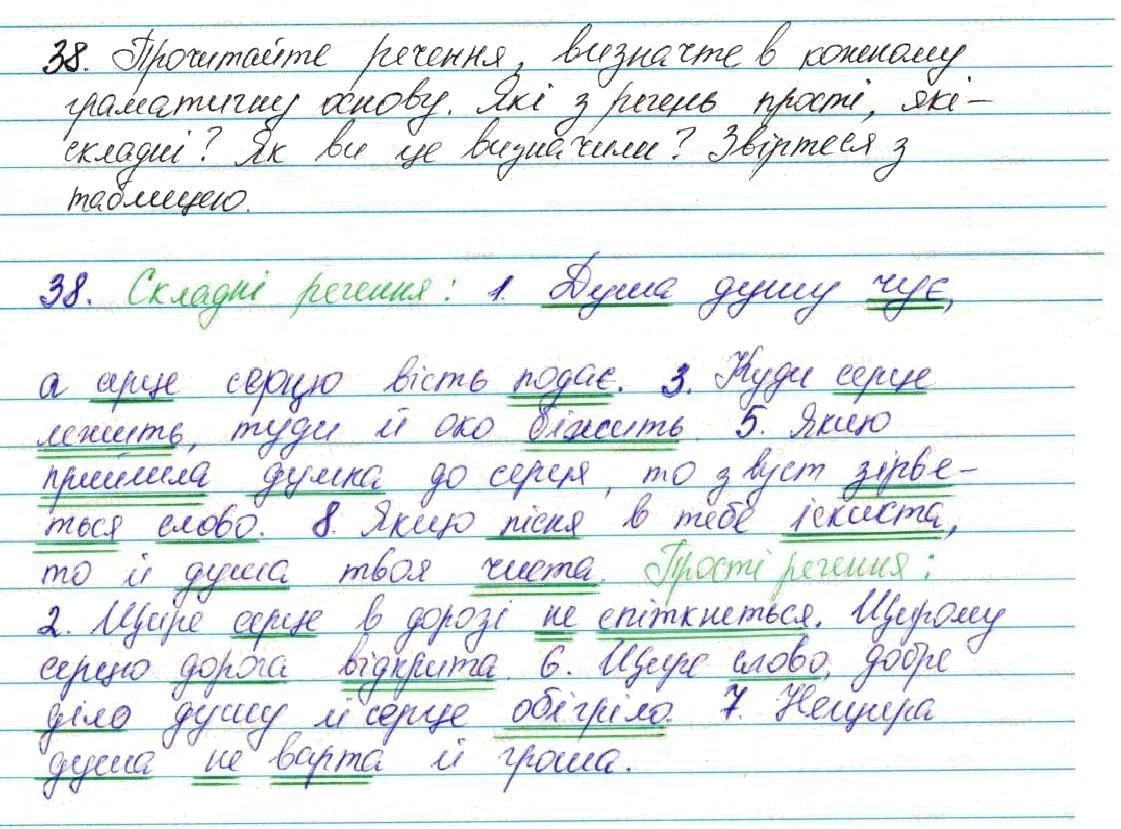 38. Прочитайте речення, визначте в кожному
граматичну основу. Які з речень прості, які –
складні? Як ви це визначили? Звіртеся з
таблицею.
38. Складні речення: 1. Душа душу чує,
а серце серцю вість подає. 3. Куди серце
лежить, туди й око біжить. 5. Якщо
прийшла думка до серця, то з вуст зірве-
ться слово. 8. Якщо пісня в тебе іскиста,
то й душа твоя чиста. Прості речення:
2. Щире серце в дорозі не спіткнеться. Щирому
серцю дорога відкрита. 6. Щире слово, добре
діло душу й серце обігріло. 7. Нещира
душа не варта й гроша.